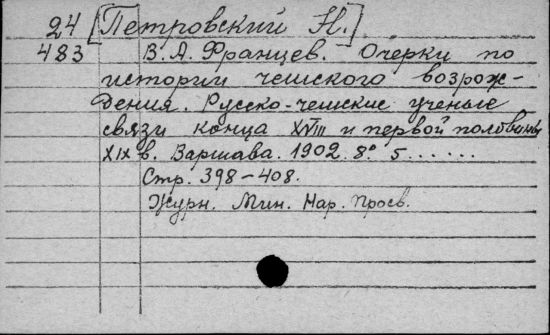 24 [Петровский Н.]
483 В. А. Францев. Очерки по
истории чешского возрож-
дения. Русско-чешские ученые
связи конца XVIII и первой половины
XIX в. Варшава. 1902. 8.° 5......
Стр. 398-408.
Журн. Мин. Нар. Просв.